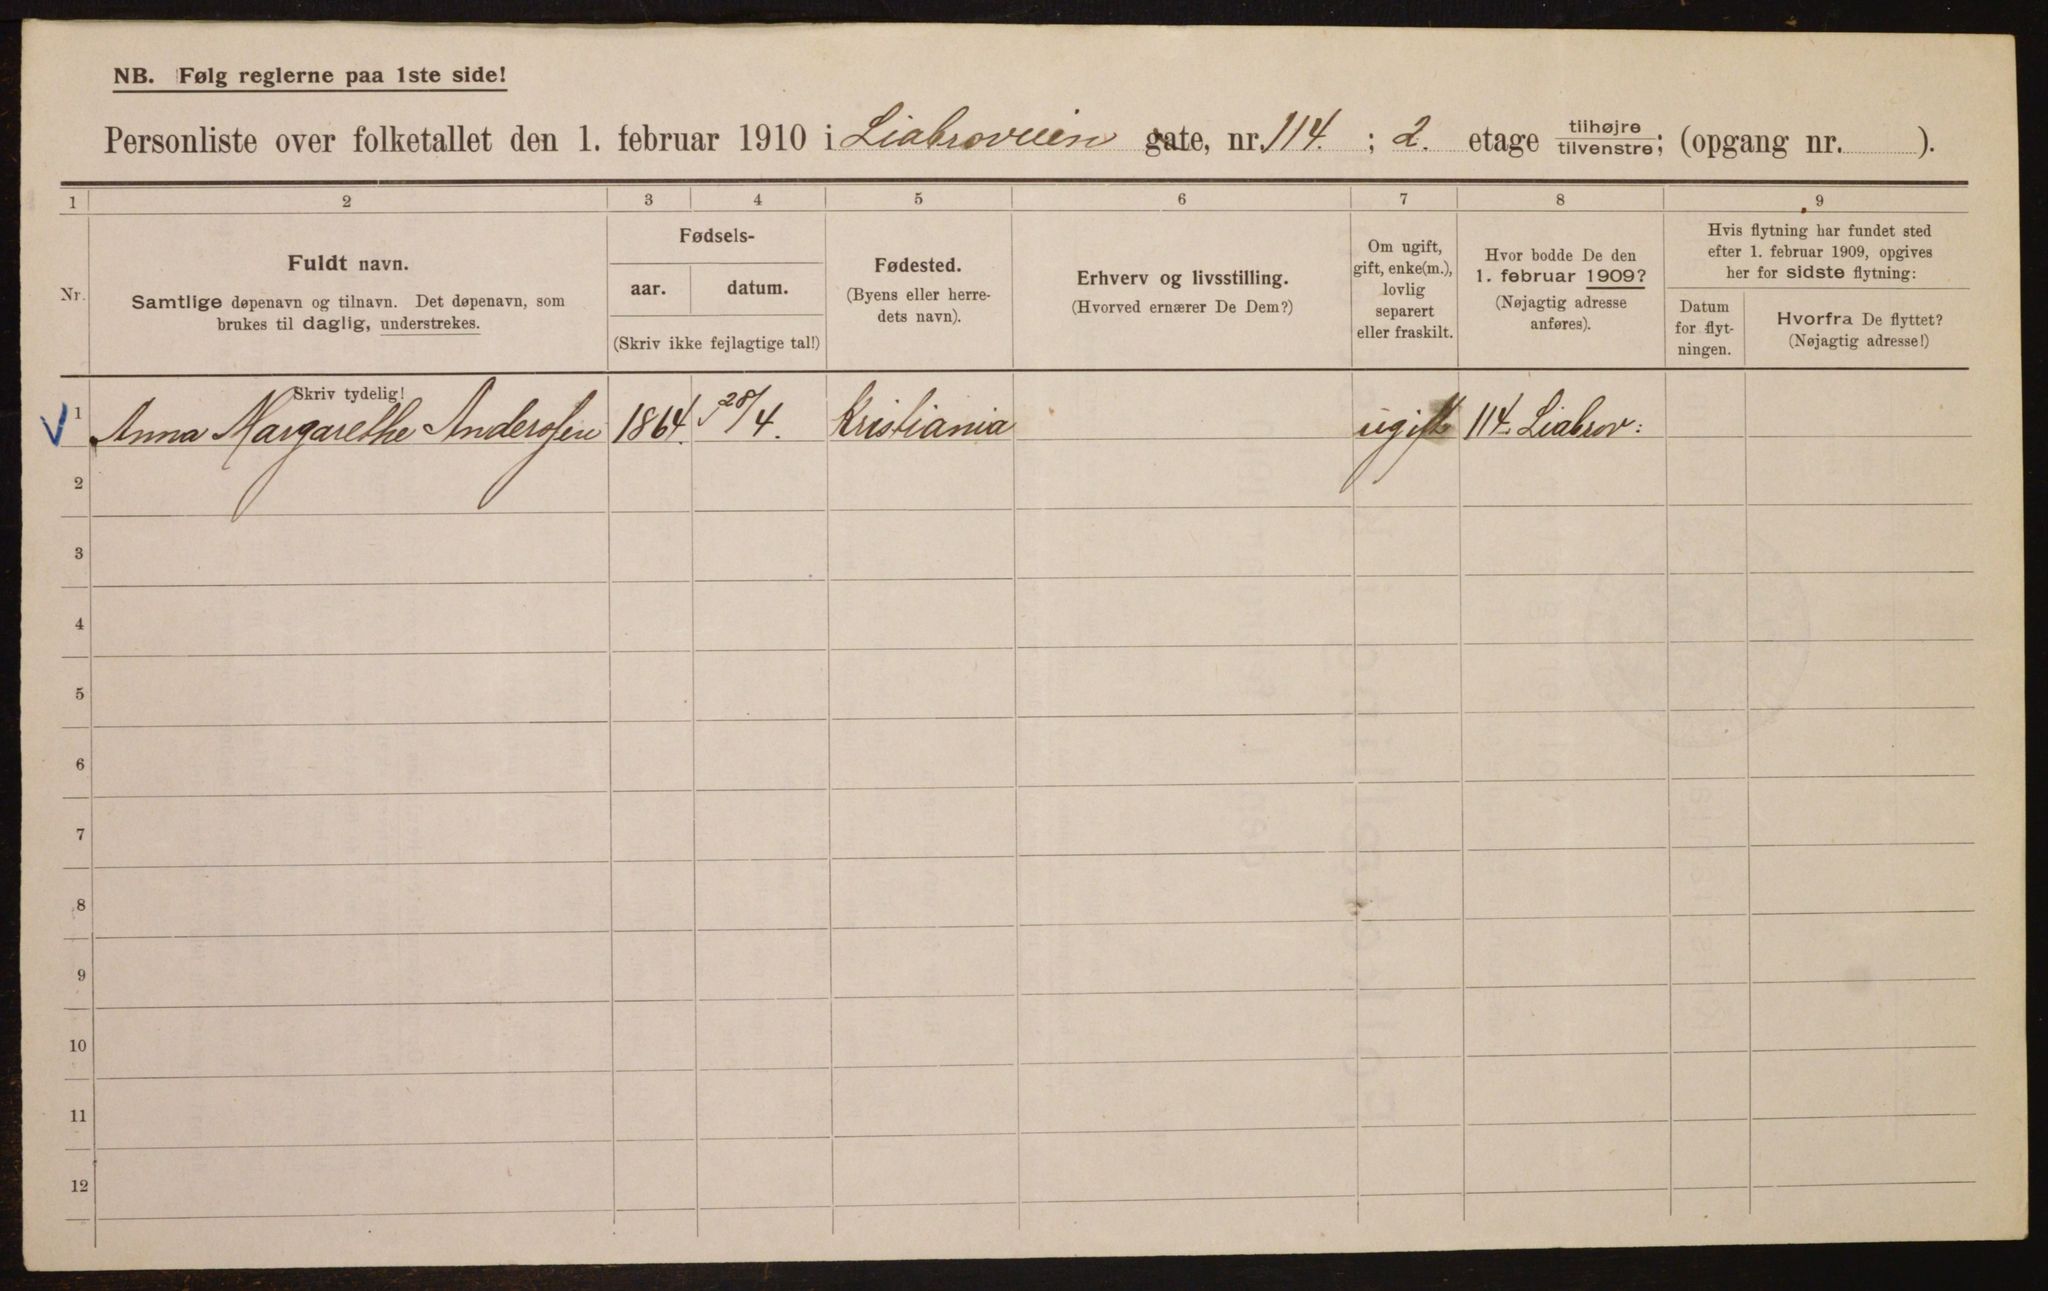 NB. Følg reglerne paa 1ste side!
Personliste over folketallet den 1. februar 1910 i Liabroveien gate, nr. 114. ; 2. etage tilhøjre tilvenstre; (opgang nr. ).
1 2 3 4 5 6 7 8 9
Nr.
Fuldt navn.
Samtlige døpenavn og tilnavn. Det døpenavn, som
brukes til daglig, understrekes.
Fødsels-
aar. datum.
(Skriv ikke fejlagtige tal!)
Fødested.
(Byens eller herre-
dets navn).
Erhverv og livsstilling.
(Hvorved ernærer De Dem?)
Om ugift,
gift, enke(m.),
lovlig
separert
eller fraskilt.
Hvor bodde De den
1. februar 1909?
(Nøjagtig adresse
anføres).
Hvis flytning har fundet sted
efter 1. februar 1909, opgives
her for sidste flytning:
Datum
for flyt-
ningen.
Hvorfra De flyttet?
(Nøjagtig adresse!)
Skriv tydelig!
1 Anna Margarethe Andersen 1864. 28/4. Kristiania ugift 114. Liabrov:
2
3
4
5
6
7
8
9
10
11
12